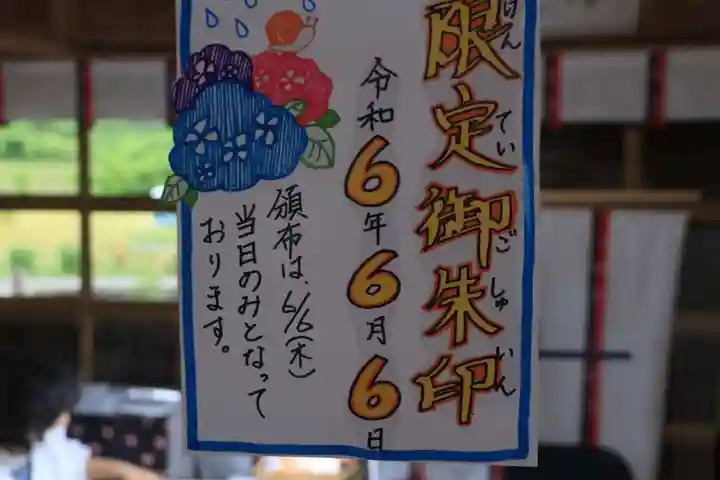 限定御朱印
げんていごしゅいん
令和6年6月6日
頒布は、6/6(木)
当日のみとなって
おります。